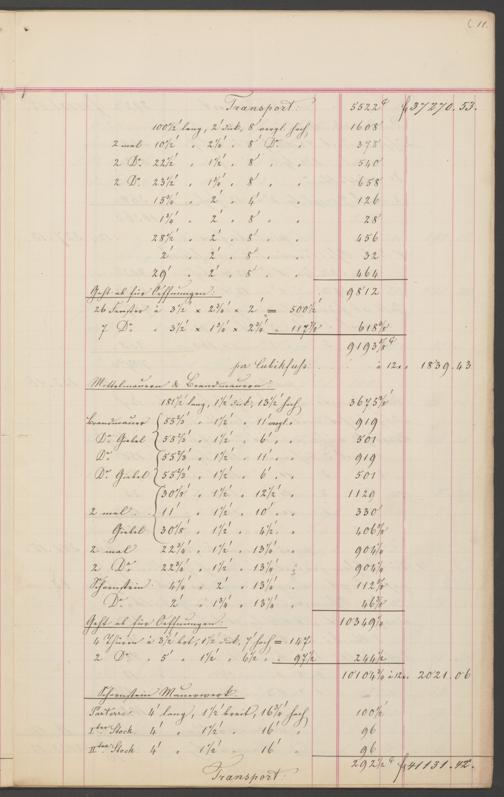 11.
Transport: 5522 37270.53.
100½' lang, 2' dick, 8' hoch 1608'
2 mal 10½' " 2½' " 8' D° " 378'
2 D° 22½' " 1½' " 8' " " 540'
2 D° 23½' " 1¾' " 8' " " 658
15¾' " 2' " 4' " " 126
1¾' " 2' " 8' " " 28
28½' " 2' " 8' " " 456
2' " 2' " 8' " " 32
29' " 2' " 8' " " 464
Geht ab für Oeffnungen: 9812
26 Fenster à 3½' × 2¾' × 2' = 500½'
7 D° " 3½' × 1¾' × 2¾' = 117⅞ 618⅜
9193⅝
pr Cubikfuss: à 12. 1839.43
Mittelmauern & Brandmauern:
181½' lang, 1½' dick, 13½' hoch 3675⅜'
Brandmauer 55⅔' " 1½' " 11' 919
D° Giebel 55⅔' " 1½' " 6' " " 501
D° 55⅔' " 1½' " 11' " " 919
D° Giebel 55⅔' " 1½' " 6' " " 501
30⅛' " 1½' " 12½' " 1129
2 mal 11' " 1½' " 10' " " 330
Giebel 30⅛' " 1½' " 4½' " " 406⅝
2 mal 22¾' " 1½' " 13¼' " 904¼
2 D° 22¾' " 1½' " 13¼' " 904¼
Schornstein 4¼' " 2' " 13¼' " 112⅝
D° 2' " 1¾' " 13¼' " 46⅜
Geht ab für Oeffnungen: 10349¼
4 Thüren à 3½' brt, 1½' dick, 7' hoch = 147.
2 D° " 5' " 1½' " 6½' " " 97½ 244½
10104¾ à 12. 2021.06
Schornstein Mauerwerk
Parterre 4' lang, 1½' breit, 16¾' hoch 100½
Iter Stock 4' " 1½' " 16' " 96
IIter Stock 4' " 1½' " 16' " 96
292½ 41131.42.
Transport: